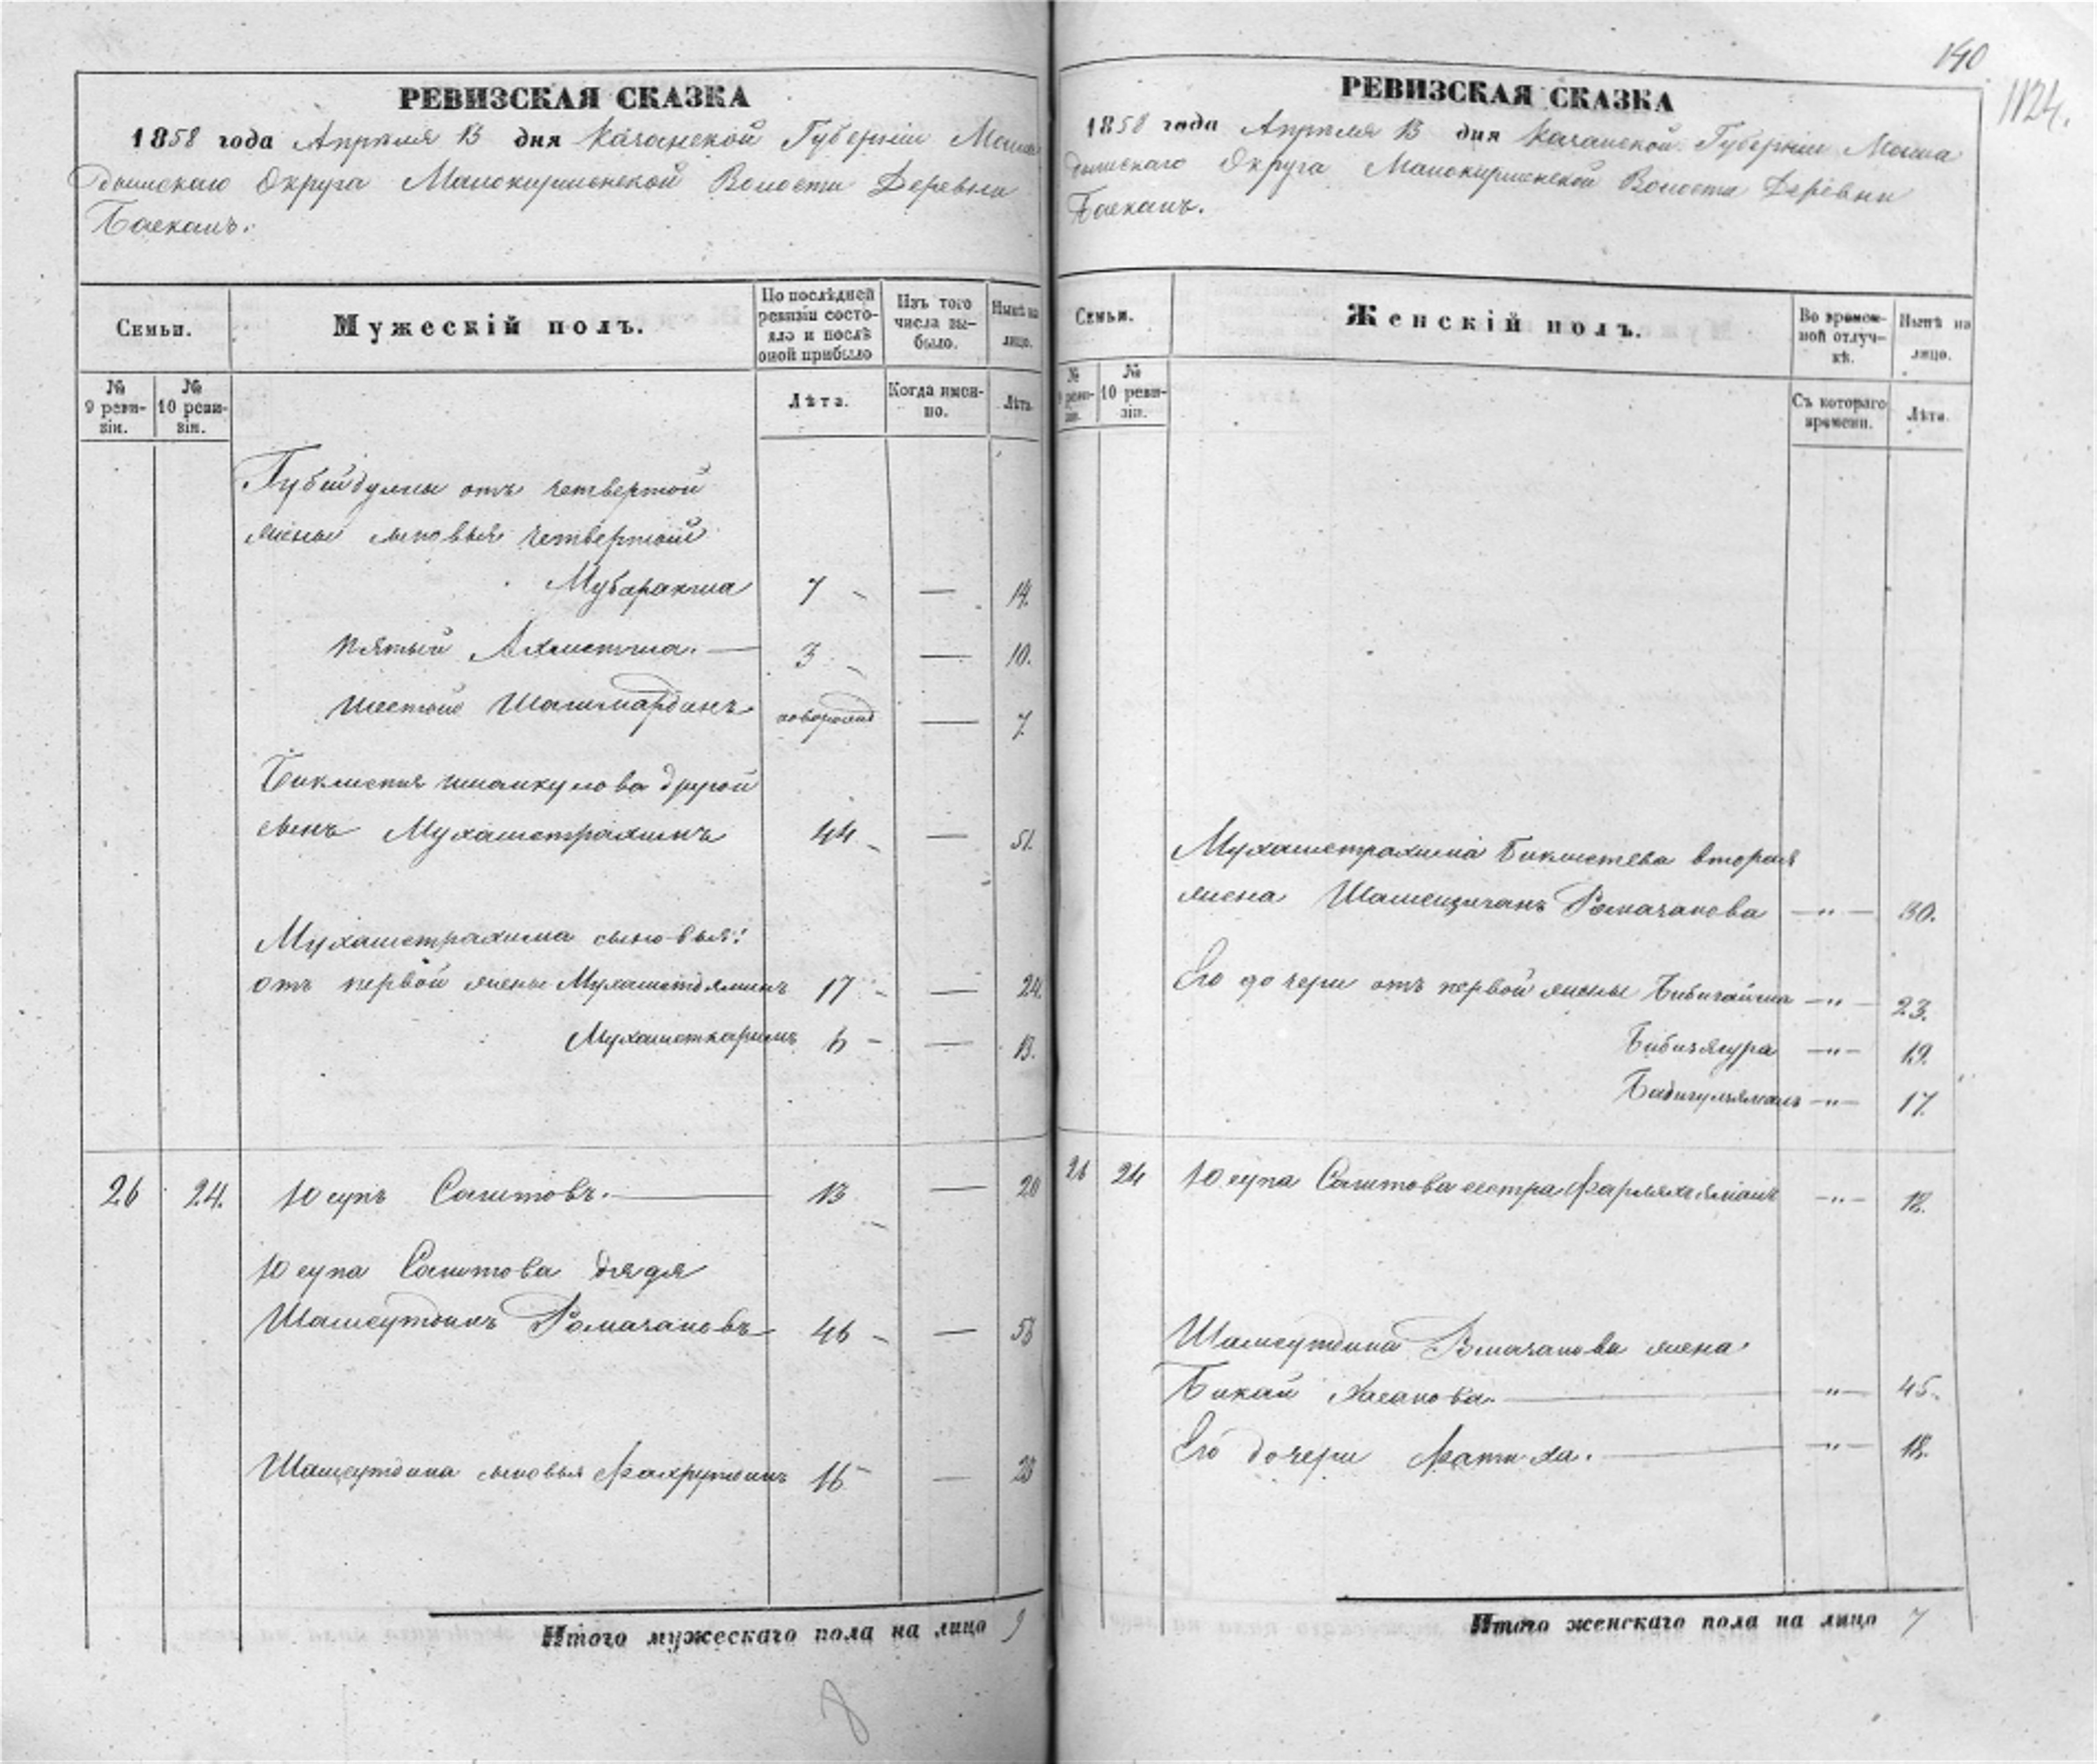 РЕВИЗСКАЯ СКАЗКА
1858 года Апреля 13 дня Казанской Губернии Мама
дышскаго Округа Малокирменской Волости Деревни
Баекаш.
Семьи.
Мужескій полъ.
По послѣдней ревизіи состояло и послѣ оной прибыло
Изъ того числа выбыло.
Нынѣ на лицо.
№ 9 ревизіи.
№ 10 ревизіи.
Лѣта.
Когда именно.
Лѣта.
Губейдуллы отъ четвертой
жены сыновья четвертый
Мубаракша 7 — 14.
пятый Ахметша. — 3 — 10.
шестой Шагимарданъ новорожд — 7.
Бикметя другой
сынъ Мухаметрахимъ 44 — 51.
Мухаметрахима сыновья:
отъ первой жены Мухаметдяминъ 17 — 24.
Мухаметкаримъ 6 — 13.
26 24. Юсупъ Саитовъ. — 13 — 20
Юсупа Саитова дядя
Шамсутдинъ Рамазановъ 46 — 53
Шамсутдина сыновья Фахрутдинъ 16 — 23
Итого мужескаго пола на лицо 9
8
140
1124.
РЕВИЗСКАЯ СКАЗКА
1858 года Апреля 13 дня Казанской Губернии Мама
дышскаго Округа Малокирменской Волости Деревни
Баекаш.
Семьи.
Женскій полъ.
Во временной отлучкѣ.
Нынѣ на лицо.
№ 9 ревизіи.
№ 10 ревизіи.
Съ котораго времени.
Лѣта.
Мухаметрахима Бикметева вторая
жена Рамазанова —"— 30.
Его дочери отъ первой жены Бибигайша —"— 23.
Бибизягура —"— 19.
Бибигульжамал —"— 17.
26 24 Юсупа Саитова сестра —"— 18.
Шамсутдина Рамазанова жена
Бикай Хасанова. — "— 45.
Его дочери Фатиха. — "— 18.
Итого женскаго пола на лицо 7